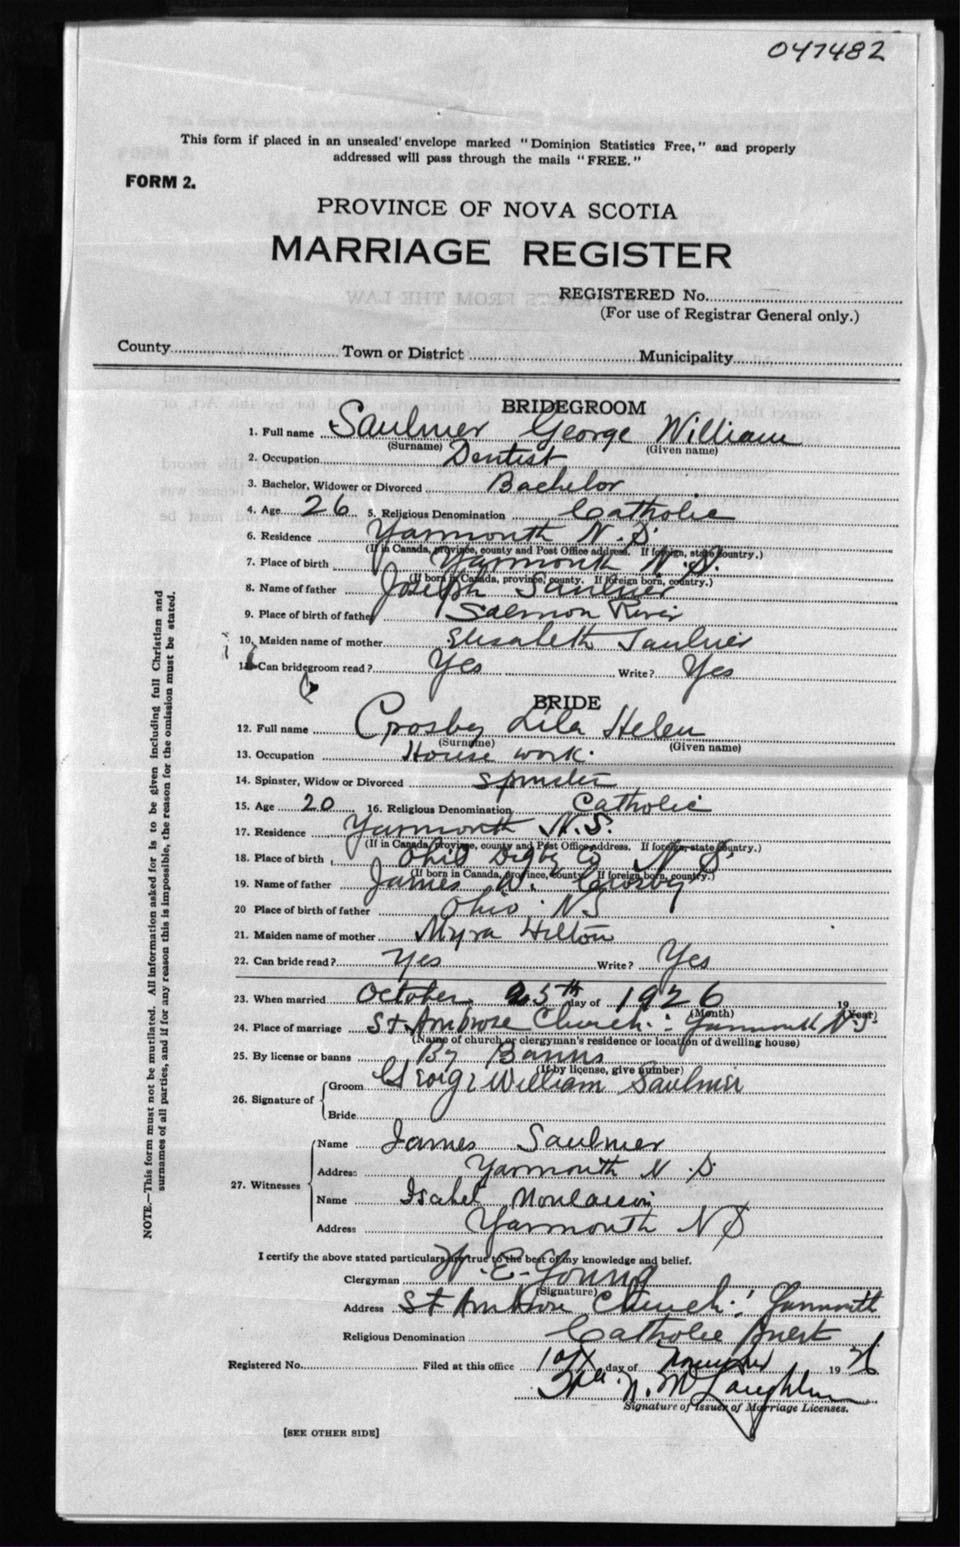 047482
This form if placed in an unsealed envelope marked "Dominion Statistics Free," and properly
addressed will pass through the mails "FREE."
FORM 2.
PROVINCE OF NOVA SCOTIA
MARRIAGE REGISTER
REGISTERED No.
(For use of Registrar General only.)
County Town or District Municipality
BRIDEGROOM
1. Full name Saulnier George William
(Surname) (Given name)
2. Occupation Dentist
3. Bachelor, Widower or Divorced Bachelor
4. Age 26 5. Religious Denomination Catholic
6. Residence Yarmouth N.S.
(If in Canada, province, county and Post Office address. If foreign, state country.)
7. Place of birth Yarmouth N.S.
(If born in Canada, province, county. If foreign born, country.)
8. Name of father Joseph Saulnier
9. Place of birth of father Salmon River
10. Maiden name of mother Elisabeth Saulnier
11. Can bridegroom read? Yes Write? Yes
BRIDE
12. Full name Crosby Lila Helen
(Surname) (Given name)
13. Occupation House work.
14. Spinster, Widow or Divorced Spinster
15. Age 20 16. Religious Denomination Catholic
17. Residence Yarmouth N.S.
(If in Canada, province, county and Post Office address. If foreign, state country.)
18. Place of birth Ohio Digby Co N S.
(If born in Canada, province, county. If foreign born, country.)
19. Name of father James W. Crosby
20 Place of birth of father Ohio N S
21. Maiden name of mother Myra Hilton
22. Can bride read? Yes Write? Yes
23. When married October 25th day of 1926 19
(Month) (Year)
24. Place of marriage St Ambrose Church. Yarmouth N.S.
(Name of church or clergyman's residence or location of dwelling house)
25. By license or banns By Banns
(If by license, give number)
26. Signature of Groom George William Saulnier
Bride
27. Witnesses Name James Saulnier
Address Yarmouth N.S
Name Isabel
Address Yarmouth N S
I certify the above stated particulars are true to the best of my knowledge and belief.
Clergyman W. E. Young
(Signature)
Address St Ambrose Church. Yarmouth
Religious Denomination Catholic Priest
Registered No. Filed at this office day of November 1926
N. McLaughlin
Signature of Issuer of Marriage Licenses.
[SEE OTHER SIDE]
NOTE.—This form must not be mutilated. All information asked for is to be given including full Christian and
surnames of all parties, and if for any reason this is impossible, the reason for the omission must be stated.